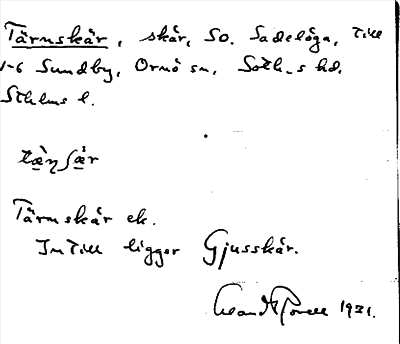 Tärnskär, skär, SO. Sadelöga, till
1-6 Sundby, Ornö sn, Soth-s hd.
Sthlms l.
tæ̀ɳʃæ̀r
Tärnskär ek.
Intill ligger Gjusskär.
1931.